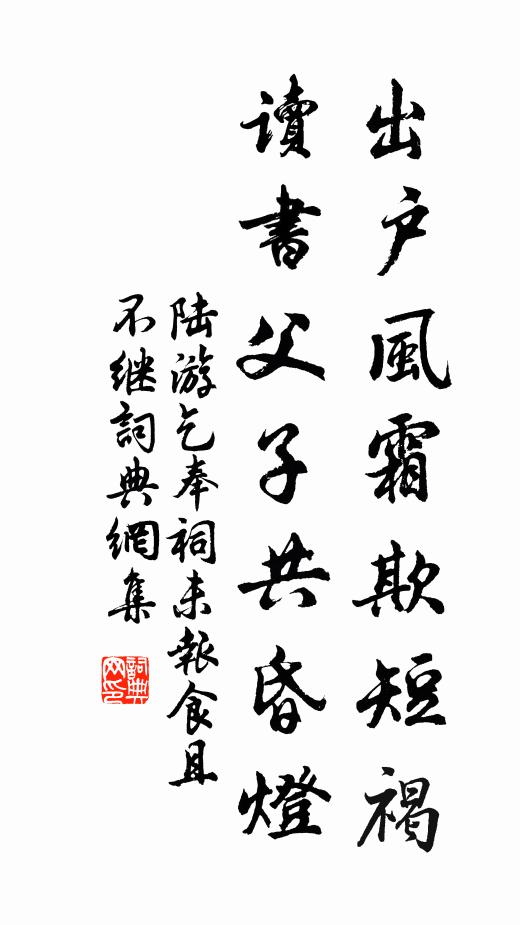 出户風霜欺短褐
讀書父子共昏燈
陆游乞奉祠未報食且
不继詞典網集
詞典网印